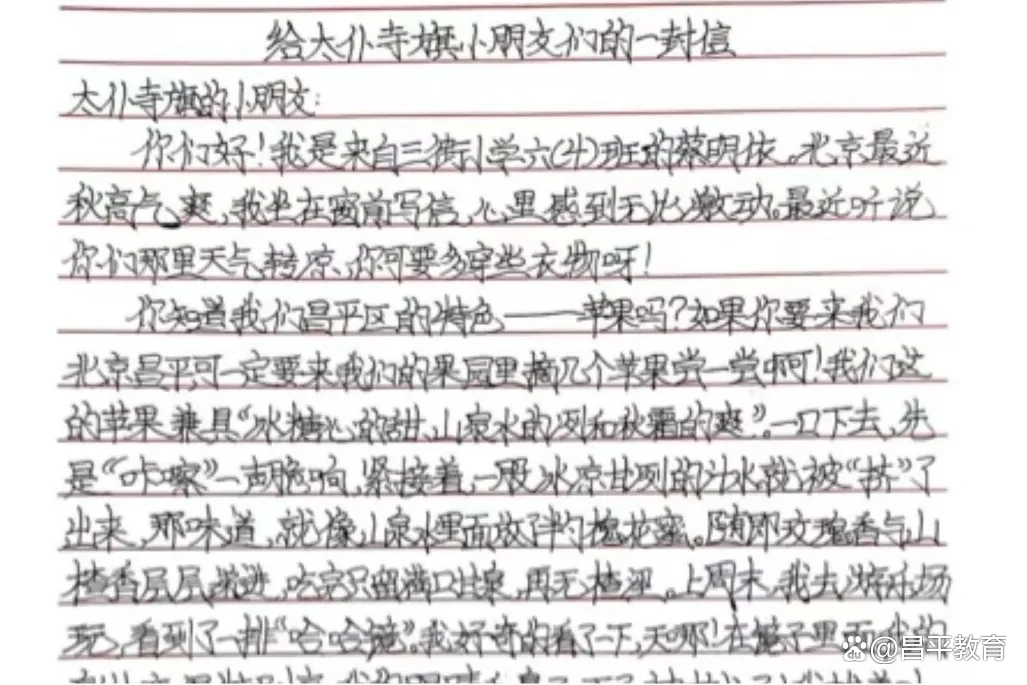 给太仆寺旗小朋友们的一封信
太仆寺旗的小朋友:
你们好!我是来自三街小学六(4)班的蔡明依。北京最近
秋高气爽,我坐在窗前写信,心里感到无比激动。最近听说
你们那里天气转凉、你可要多穿些衣物呀!
你知道我们昌平区的特色——苹果吗?如果你要来我们
北京昌平,可一定要来我们的果园里摘几个苹果尝一尝啊!我们这
的苹果兼具“冰糖心的甜、山泉水的冽和秋霜的爽”。一口下去,先
是“咔嚓”一声脆响,紧接着,一股冰凉甘冽的汁水就被“挤”了
出来,那味道,就像山泉水里面放了半勺槐花蜜。随即玫瑰香与山
楂香层层递进,吃完只留满口甘泉,再无渣涩。上周末,我去游乐场
玩,看到了一排“哈哈镜”。我好奇的看了一下,天哪!在镜子里
@昌平教育